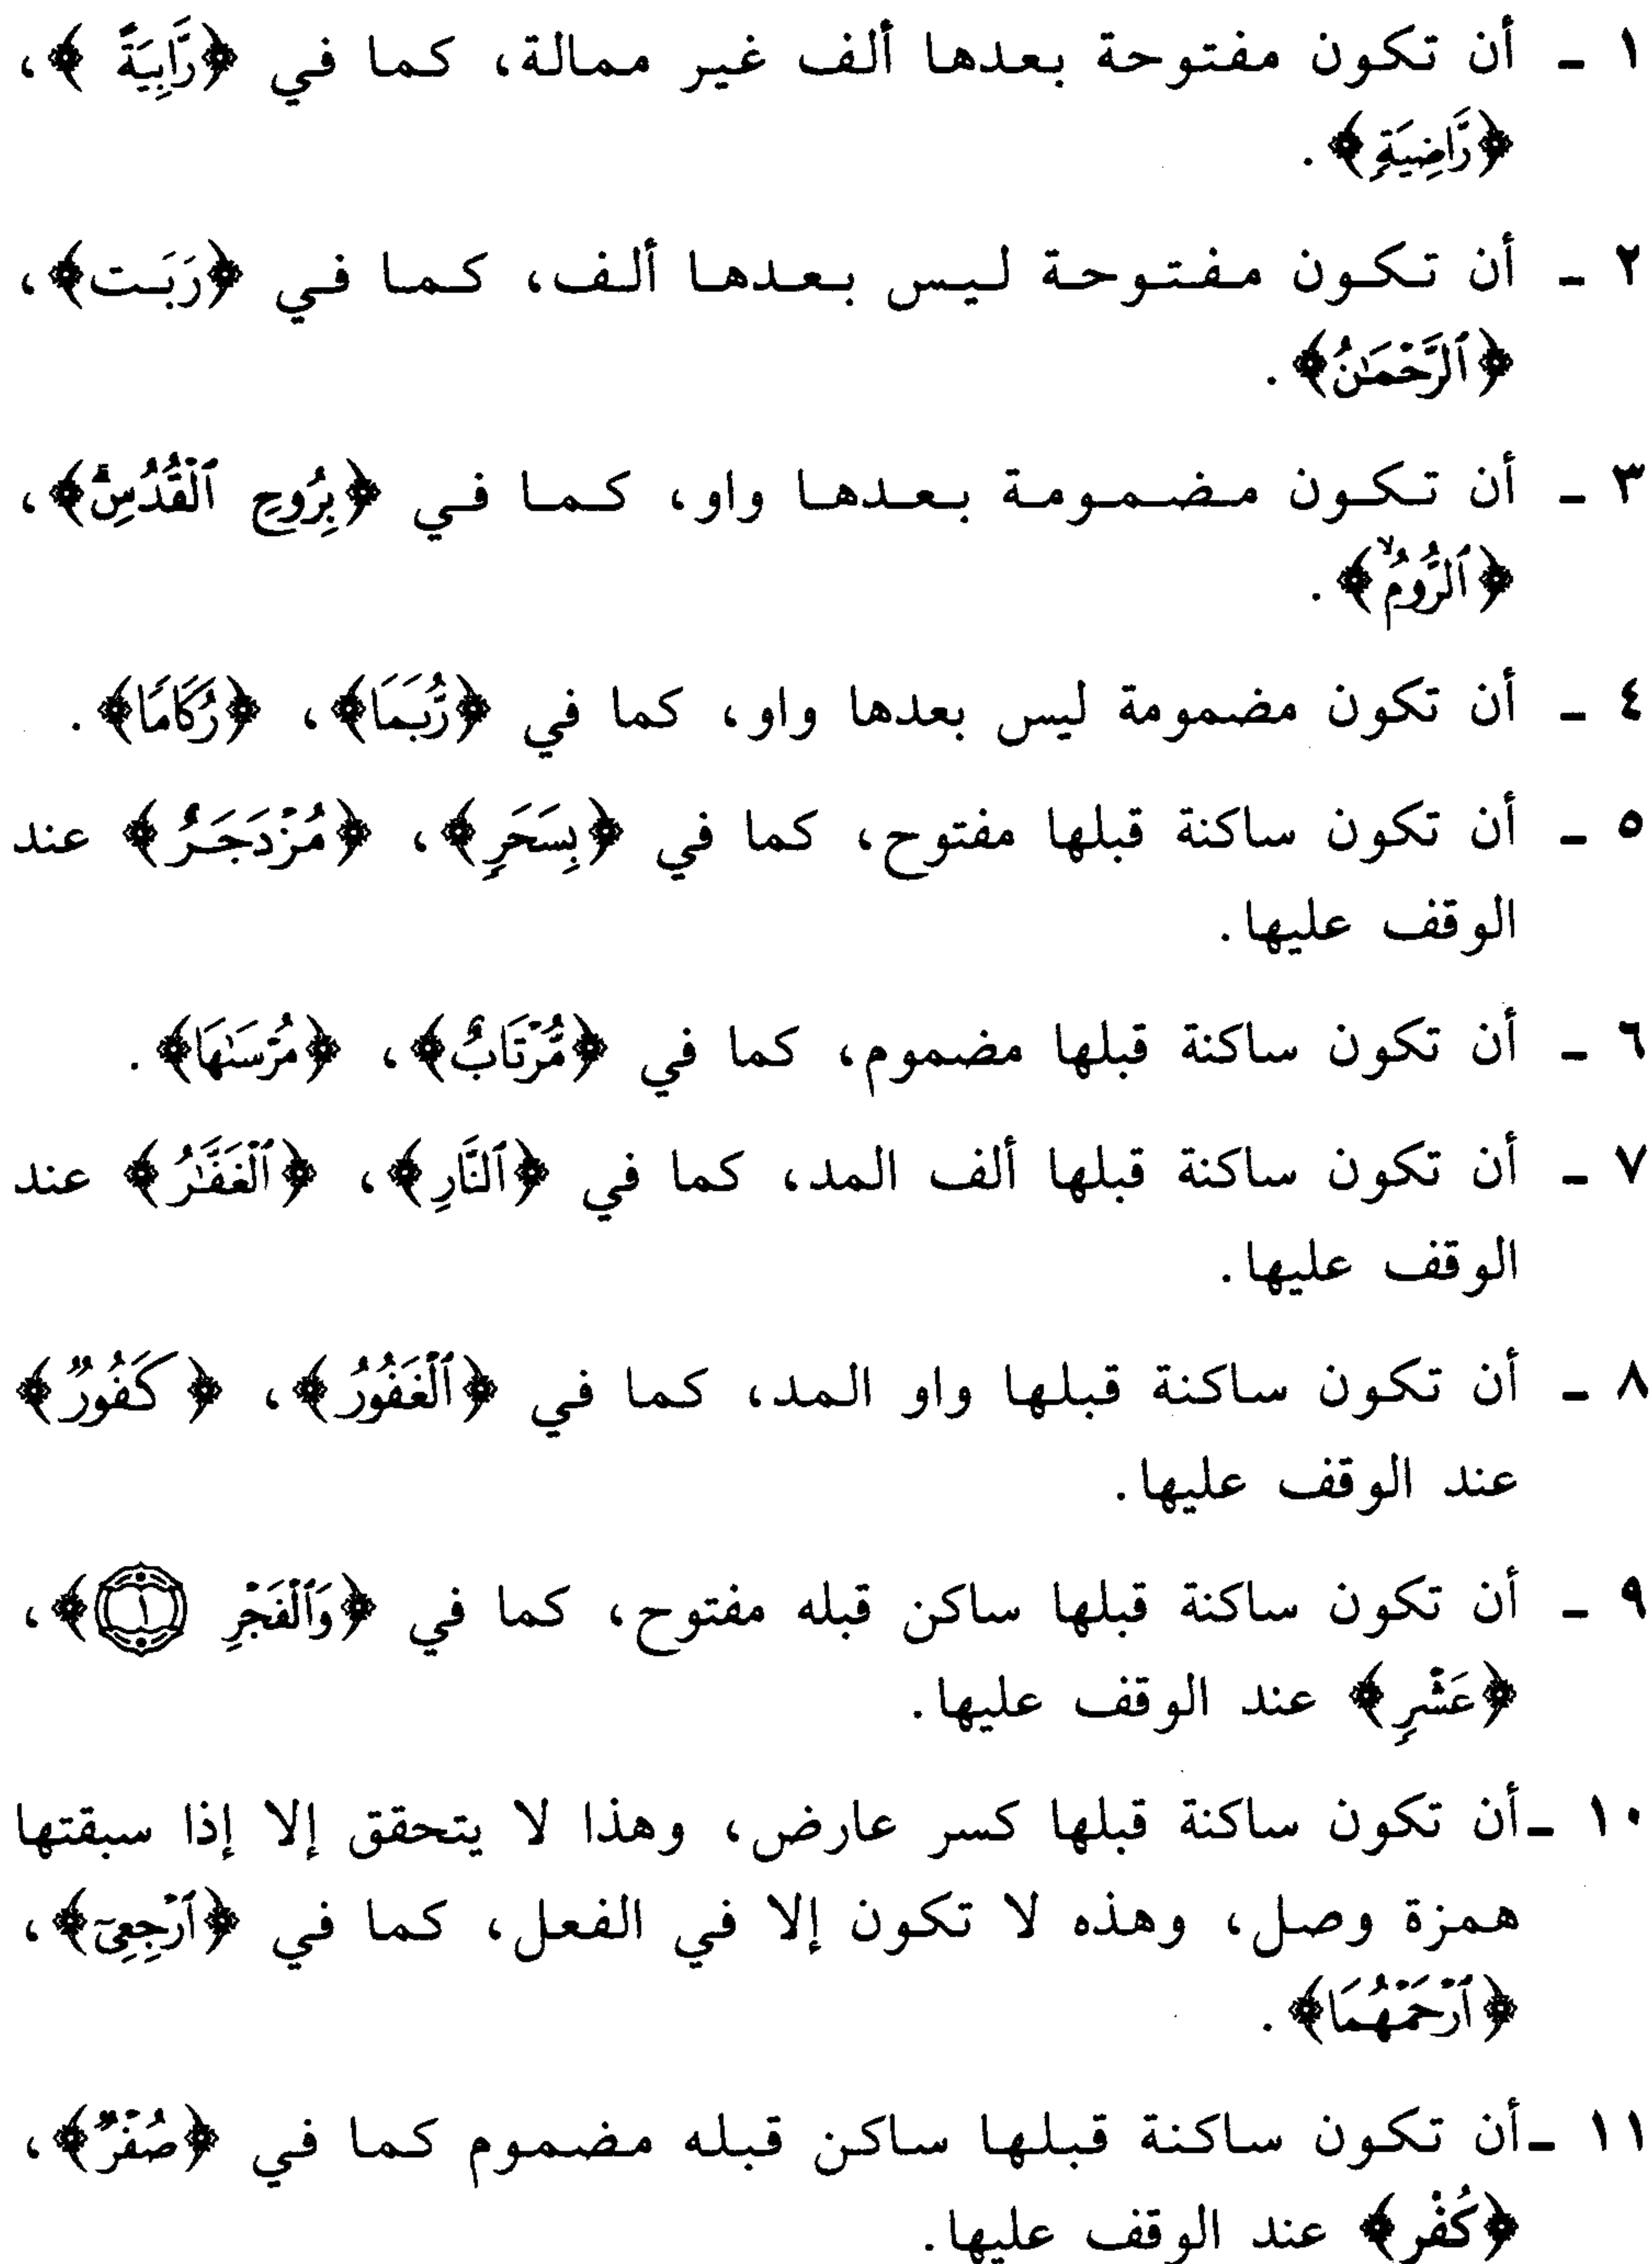 ١ ـ أن تكون مفتوحة بعدها ألف غير ممالة، كما في ﴿رَّابِيَةً﴾،
﴿رَّاضِيَةٍ﴾.
٢ ـ أن تكون مفتوحة ليس بعدها ألف، كما في ﴿رَبَت﴾،
﴿ٱلرَّحْمَٰنُ﴾.
٣ ـ أن تكون مضمومة بعدها واو، كما في ﴿بِرُوحِ ٱلْقُدُسِۗ﴾،
﴿ٱلرُّومُۙ﴾.
٤ ـ أن تكون مضمومة ليس بعدها واو، كما في ﴿رُّبَمَا﴾، ﴿رُكَامًا﴾.
٥ ـ أن تكون ساكنة قبلها مفتوح، كما في ﴿بِسَحَرٍ﴾، ﴿مُزْدَجَرٌ﴾ عند
الوقف عليها.
٦ ـ أن تكون ساكنة قبلها مضموم، كما في ﴿مُّرْتَابٌ﴾، ﴿مُرْسَىٰهَا﴾.
٧ ـ أن تكون ساكنة قبلها ألف المد، كما في ﴿ٱلنَّارِ﴾، ﴿ٱلْغَفَّٰرُ﴾ عند
الوقف عليها.
٨ ـ أن تكون ساكنة قبلها واو المد، كما في ﴿ٱلْغَفُورُ﴾، ﴿كَفُورٌ﴾
عند الوقف عليها.
٩ ـ أن تكون ساكنة قبلها ساكن قبله مفتوح، كما في ﴿وَٱلْفَجْرِ ١﴾،
﴿عَشْرٍ﴾ عند الوقف عليها.
١٠ ـ أن تكون ساكنة قبلها كسر عارض، وهذا لا يتحقق إلا إذا سبقتها
همزة وصل، وهذه لا تكون إلا في الفعل، كما في ﴿ٱرْجِعِىٓ﴾،
﴿ٱرْحَمْهُمَا﴾.
١١ ـ أن تكون ساكنة قبلها ساكن قبله مضموم كما في ﴿صُفْرٌ﴾،
﴿كُفْر﴾ عند الوقف عليها.